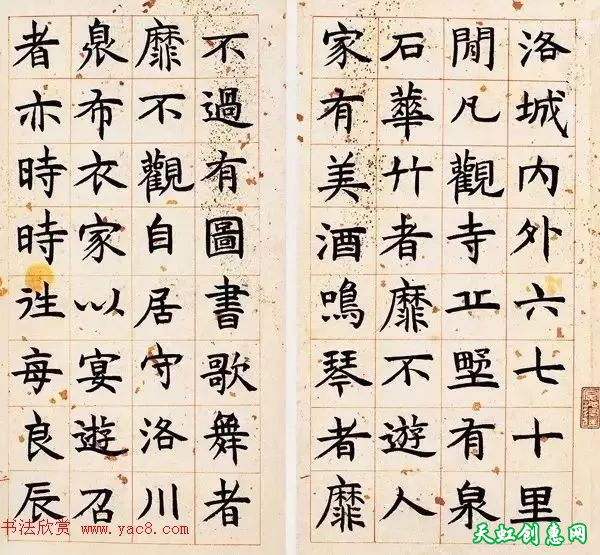 洛城内外六七十里
閒凡觀寺丘墅有泉
石華竹者靡不遊人
家有美酒鳴琴者靡
不過有圖書歌舞者
靡不觀自居守洛川
臮布衣家以宴遊召
者亦時時往每良辰
书法欣赏 www.yac8.com
天虹创意网